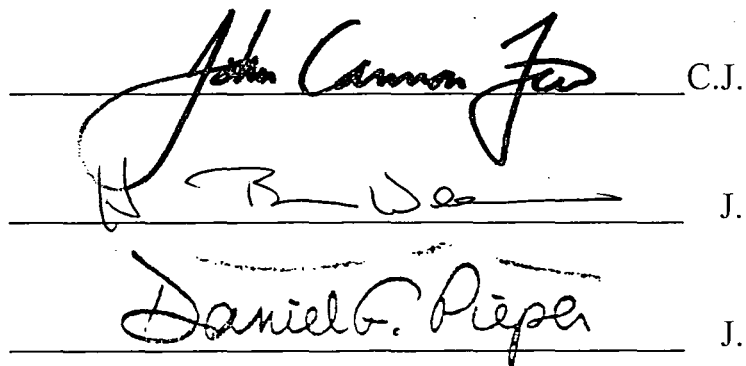 John Cannon Few C.J.
H J.
Daniel F. Pieper J.